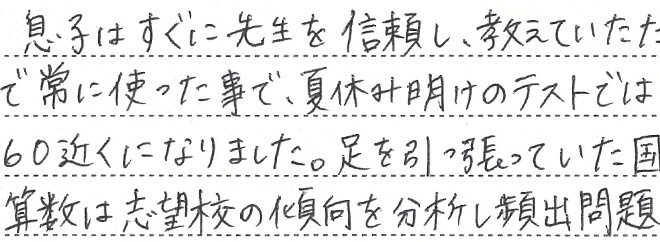 息子はすぐに先生を信頼し、教えていただ
で常に使った事で、夏休み明けのテストでは
60近くになりました。足を引っ張っていた国
算数は志望校の傾向を分析し頻出問題